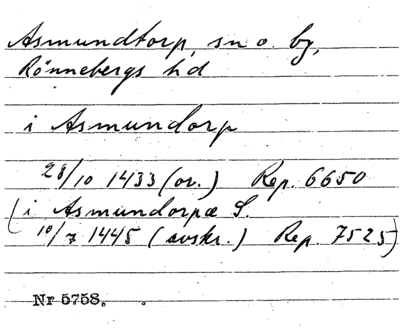 Asmundtorp, sn o. by,
Rönnebergs hd
i Asmundorp
28/10 1433 (or.) Rep. 6650
(i Asmundorpæ S.
10/7 1445 (avskr.) Rep. 7525)
Nr 5758.